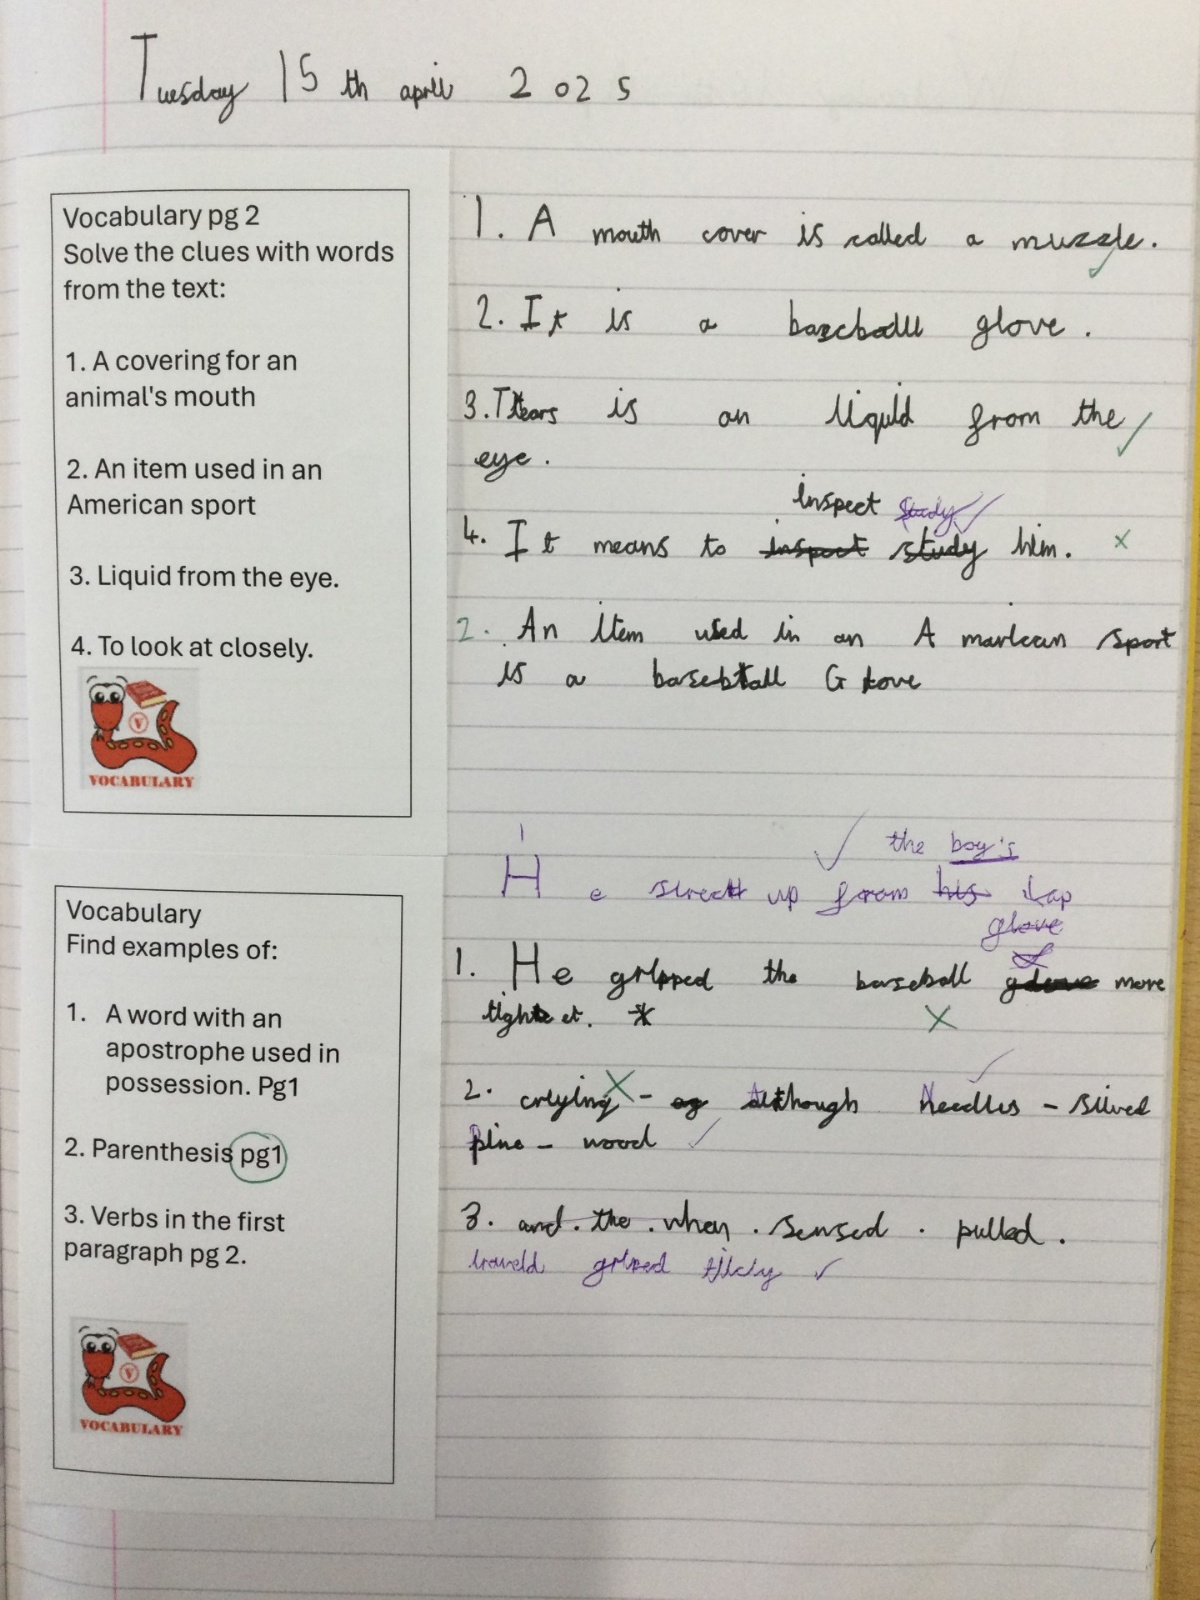 Tuesday 15th april 2025
Vocabulary pg 2
Solve the clues with words
from the text:
1. A covering for an
animal's mouth
2. An item used in an
American sport
3. Liquid from the eye.
4. To look at closely.
V
VOCABULARY
1. A mouth cover is called a muzzle.
2. It is a baseball glove.
3. Tears is an liquid from the
eye.
inspect study
4. It means to inspect study him.
2. An item used in an A marican sport
is a baseball G love
Vocabulary
Find examples of:
1. A word with an
apostrophe used in
possession. Pg1
2. Parenthesis pg1
3. Verbs in the first
paragraph pg 2.
V
VOCABULARY
1 the boy's
He up from his lap
glove
1. He gripped the baseball glove more
*
2. crying - although Needles - silved
pine - wood
3. and . the . when . sensed . pulled .